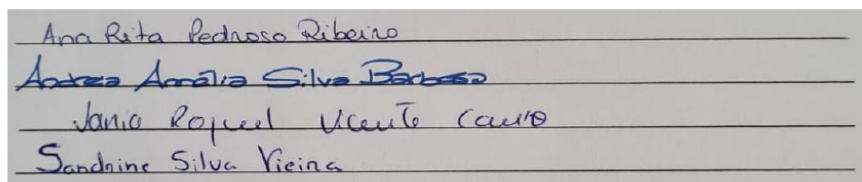 Ana Rita Pedroso Ribeiro
Andrea Amália Silva Barbosa
Vania Raquel Vicente
Sandrine Silva Vieira